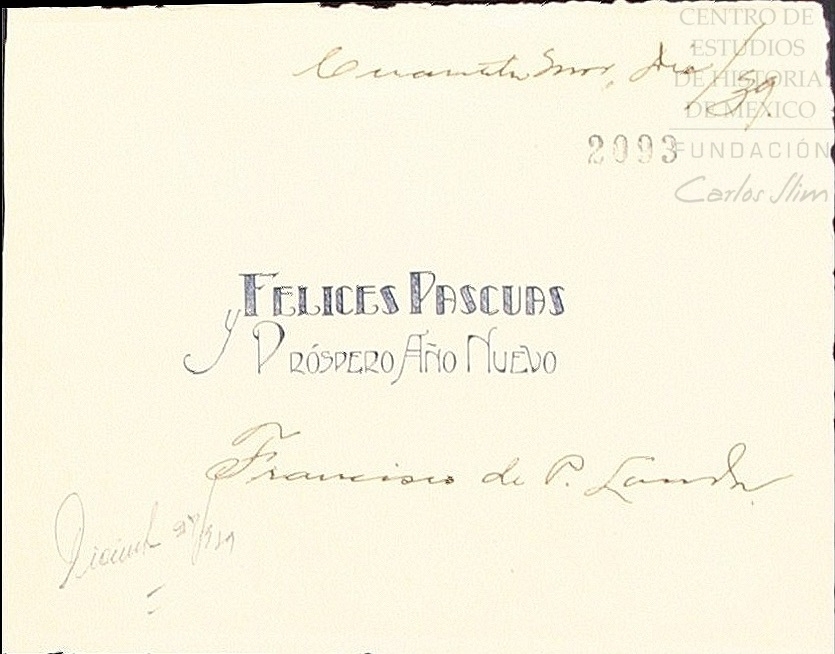 CENTRO DE
ESTUDIOS
DE HISTORIA
DE MEXICO
FUNDACIÓN
Carlos Slim
Cuautla Mor, Dic/39.
2093
FELICES PASCUAS
y PRÓSPERO AÑO NUEVO
Francisco de P. Landa